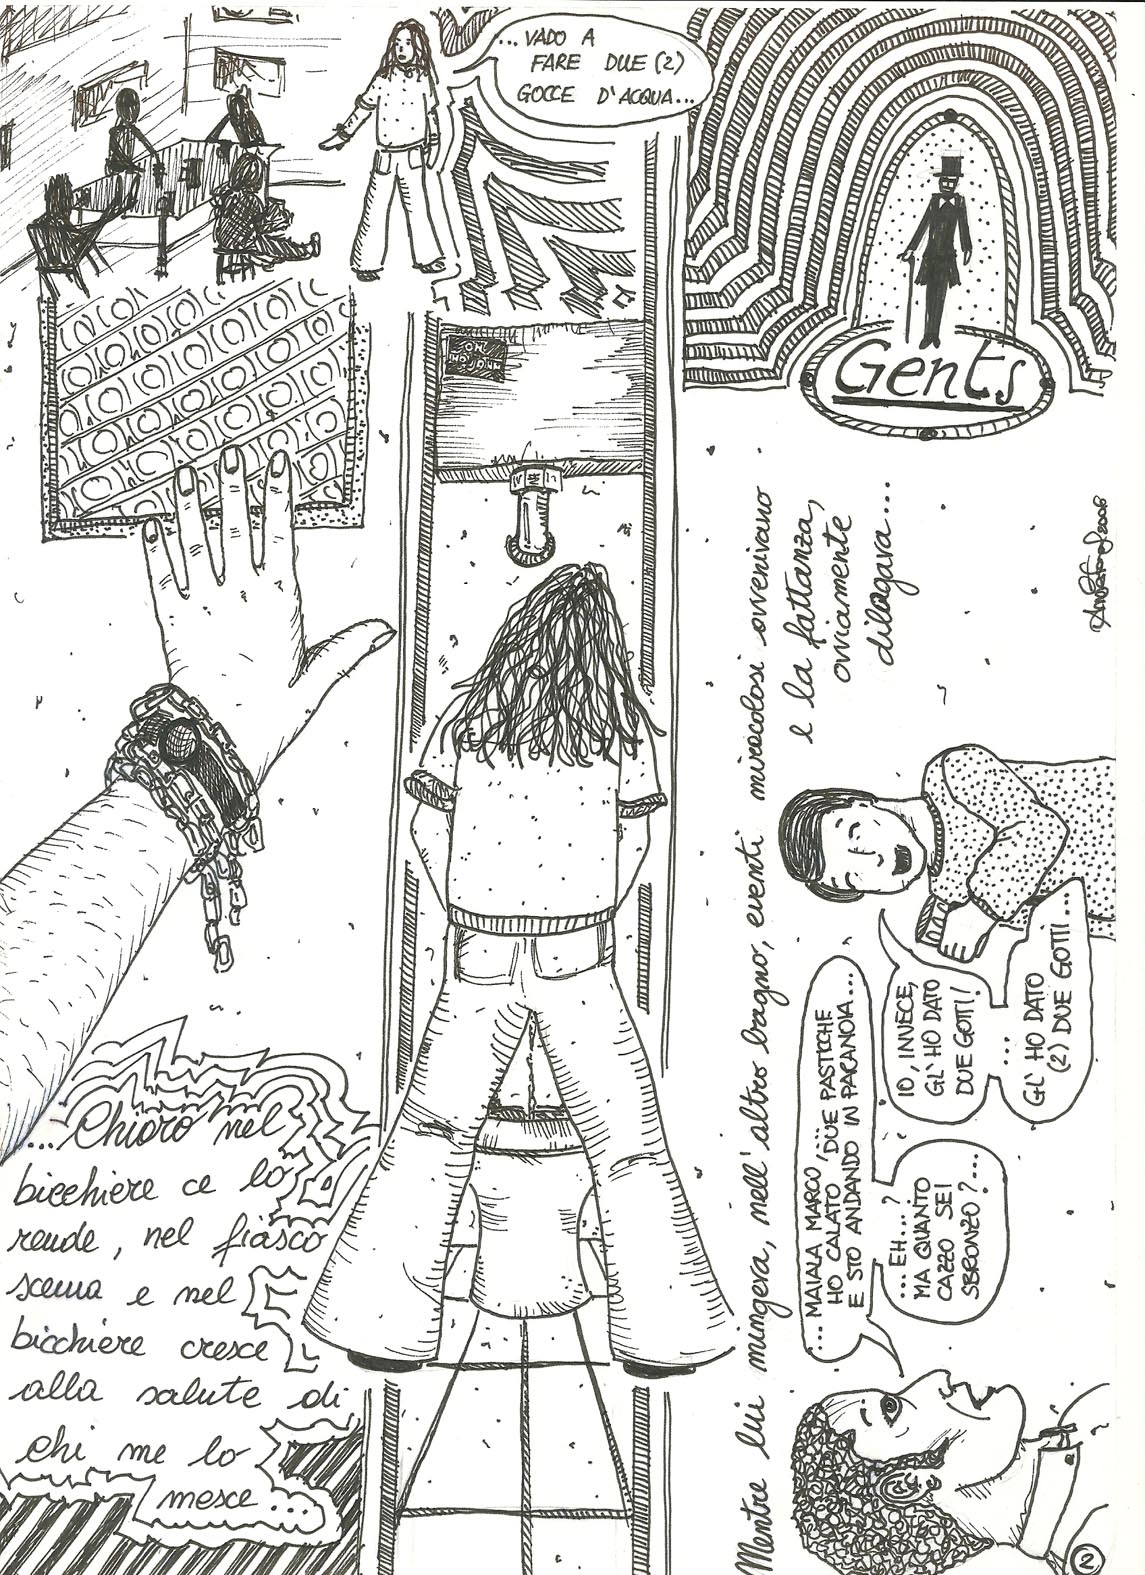 ...VADO A
FARE DUE (2)
GOCCE D'ACQUA...
Gents
... Chiaro nel
bicchiere ce lo
rende, nel fiasco
scema e nel
bicchiere cresce
alla salute di
chi me lo
mesce...
Mentre lui mingeva, nell'altro bagno, eventi miracolosi avvenivano
e la fattanza,
ovviamente
dilagava...
... MAIALA MARCO,
HO CALATO DUE PASTICCHE
E STO ANDANDO IN PARANOIA...
... EH...?
MA QUANTO
CAZZO SEI
SBRONZO?...
IO, INVECE,
GL'HO DATO
DUE GOTTI!
...
GL'HO DATO
(2) DUE GOTTI...
2